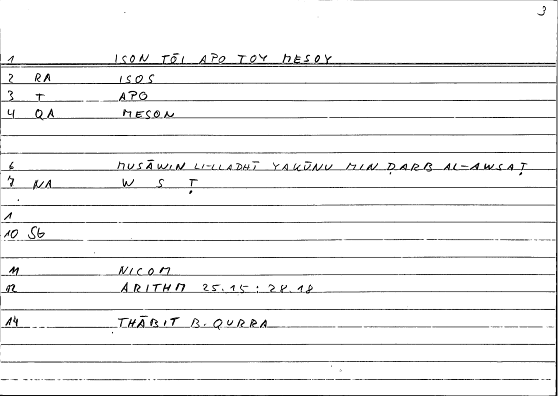 3
1 ISON TŌI APO TOY MESOY
2 RA ISOS
3 T APO
4 QA MESON
6 MUSĀWIN LI-LLADHĪ YAKŪNU MIN ḌARB AL-AWSAṬ
7 NA W S Ṭ
1
10 Sb
11 NICOM
12 ARITHM 25.15 : 28.18
14 THĀBIT B. QURRA